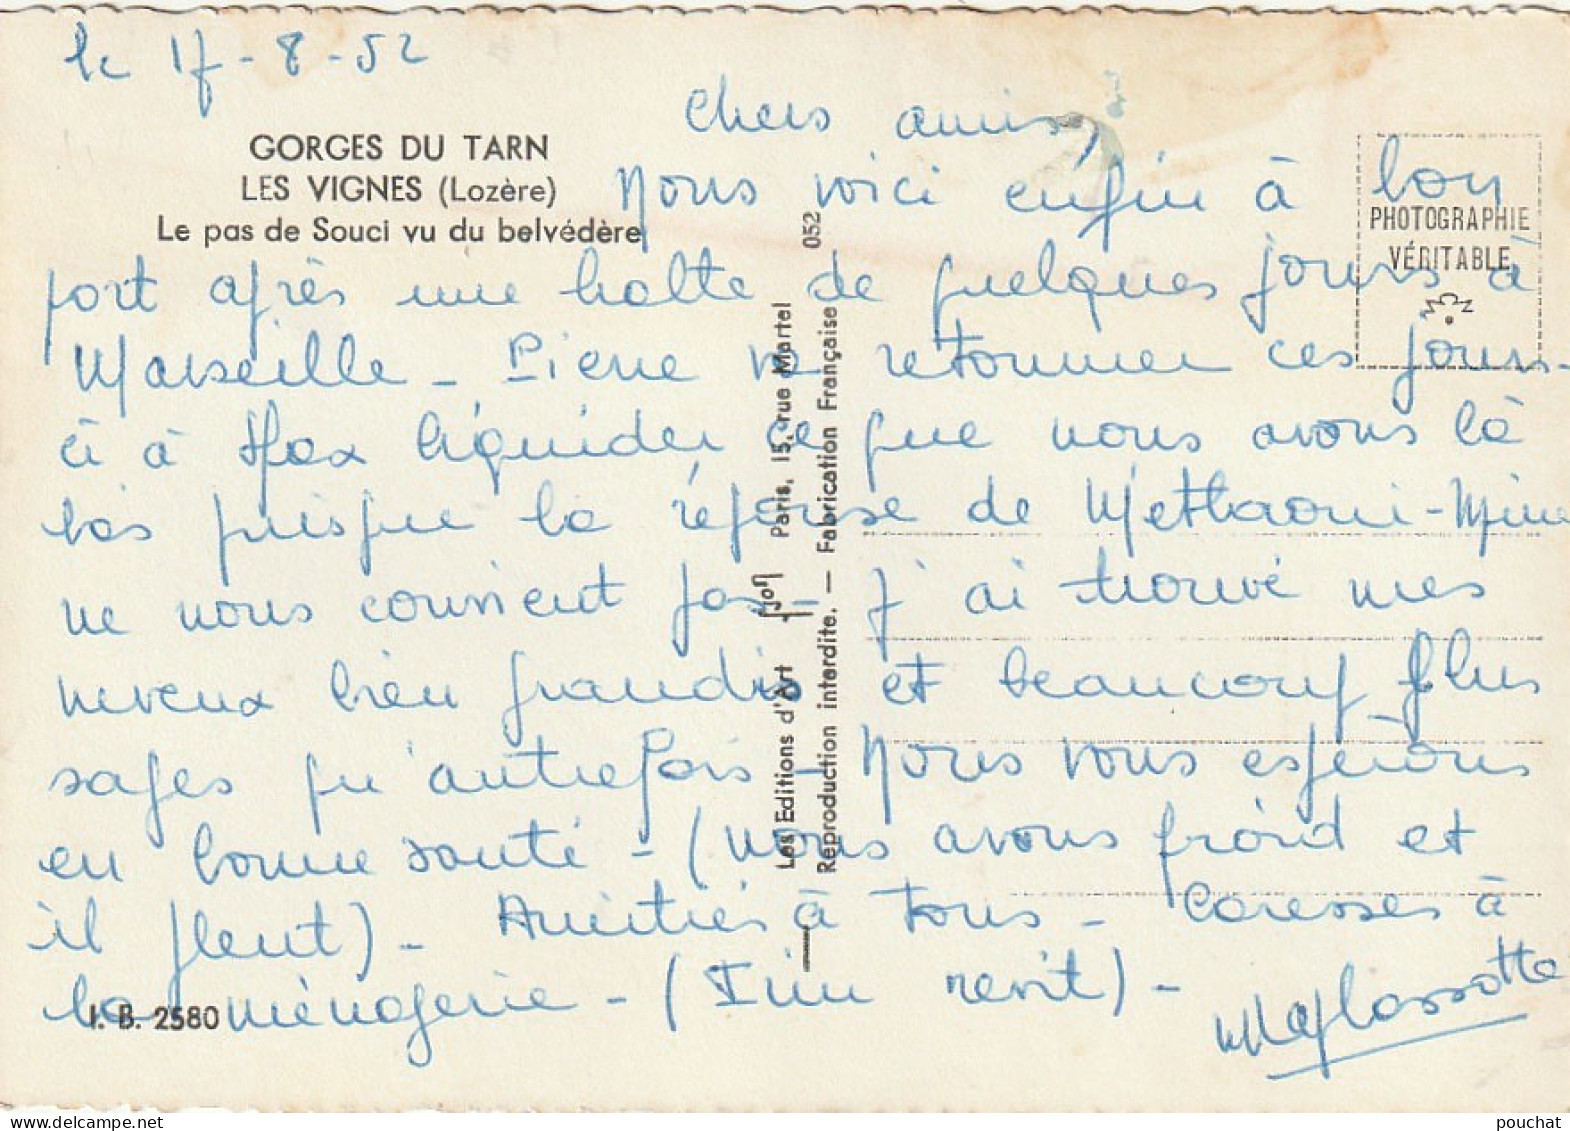 le 17-8-52
GORGES DU TARN
LES VIGNES (Lozère)
Le pas de Souci vu du belvédère
Chers amis,
Nous voici enfin à bon
port après une halte de quelques jours à
Marseille - Pierre va retourner ces jours-
ci à Sfax liquider ce que nous avons là
bas puisque la réponse de Metlaoui-Mine
ne nous convient pas - J'ai trouvé mes
neveux bien grandis et beaucoup plus
sages qu'autrefois - Nous vous espérons
en bonne santé - (nous avons froid et
il pleut) - Amitiés à tous - Caresses à
la ménagerie - ( revit) -
PHOTOGRAPHIE
VÉRITABLE
052
Les Editions d'Art Paris, 15, rue Martel
Reproduction interdite. — Fabrication Française
I. B. 2580
pouchat